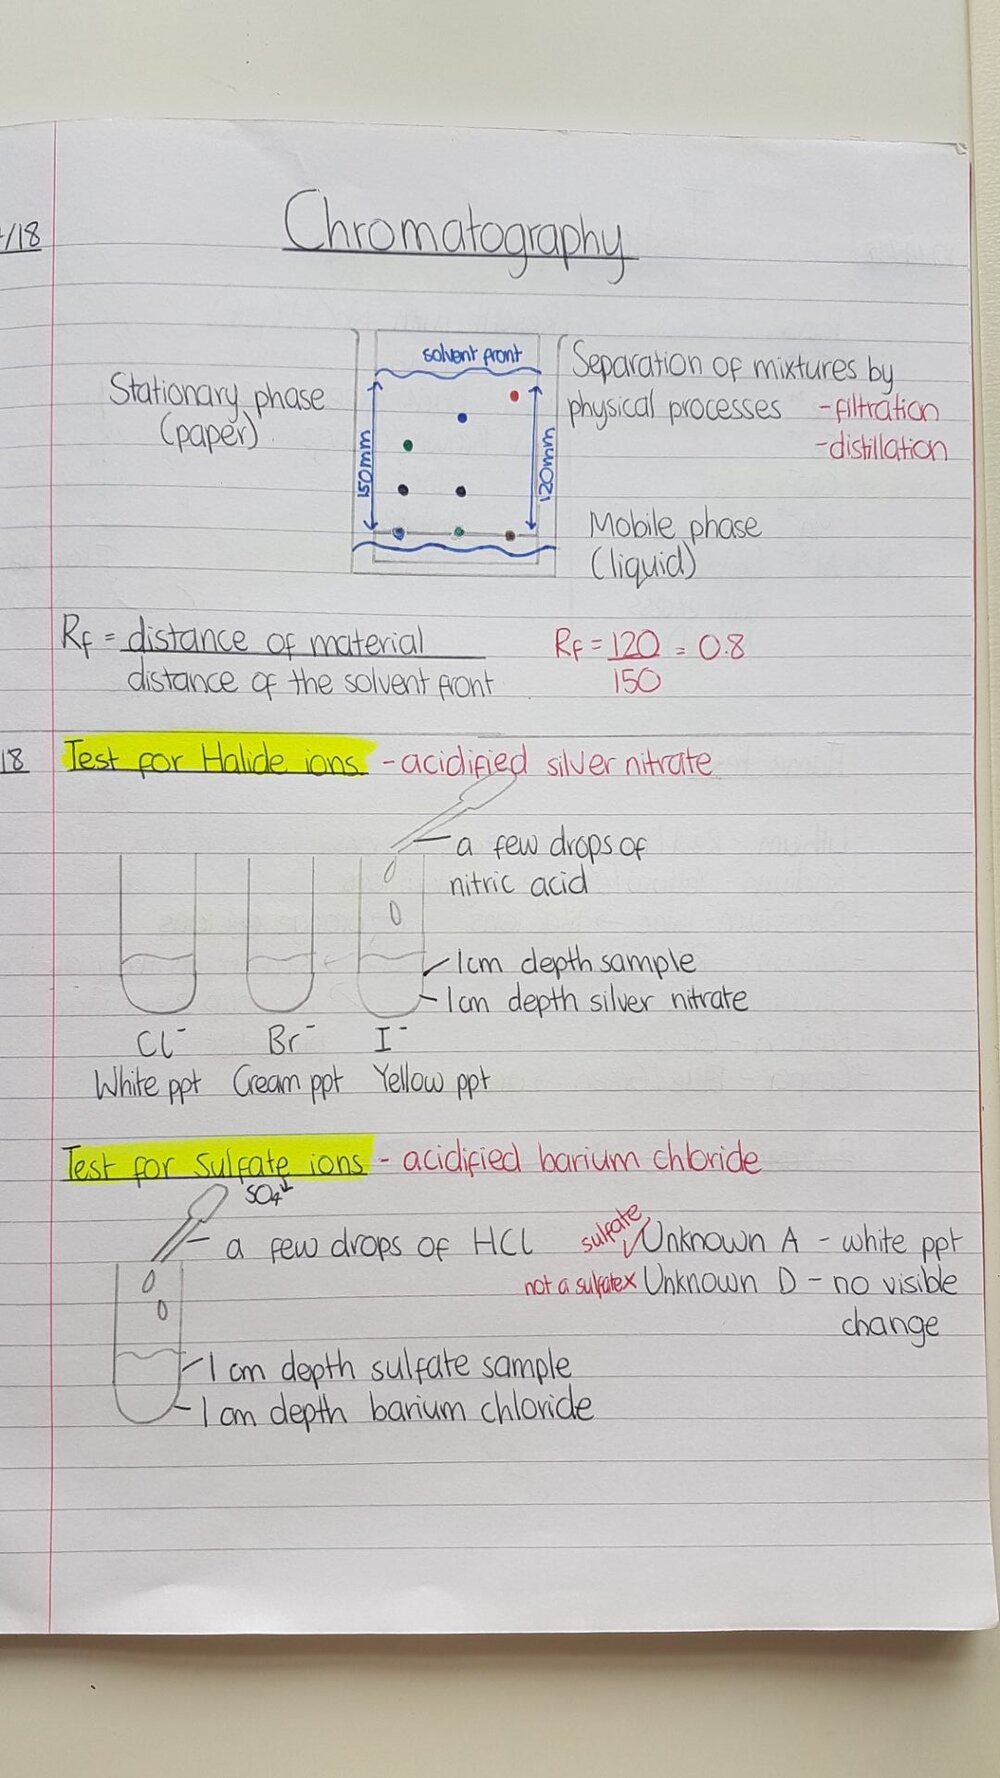 /18
Chromatography
solvent front
Stationary phase
(paper)
150mm
120mm
Separation of mixtures by
physical processes -filtration
-distillation
Mobile phase
(liquid)
Rf = distance of material
distance of the solvent front
Rf = 120 = 0.8
150
18
Test for Halide ions - acidified silver nitrate
a few drops of
nitric acid
1cm depth sample
1cm depth silver nitrate
Cl⁻ Br⁻ I⁻
White ppt Cream ppt Yellow ppt
Test for sulfate ions - acidified barium chloride
SO4
a few drops of HCl
sulfate ✓ Unknown A - white ppt
not a sulfate x Unknown D - no visible
change
1 cm depth sulfate sample
1 cm depth barium chloride